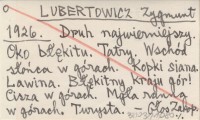 LUBERTOWICZ Zygmunt
1926. Druh najwierniejszy.
Oko błękitu. Tatry. Wschód
słońca w górach. Kopki siana.
Lawina. Błękitny kraju gór!
Cisza w górach. Mgła ranna
w górach. Turysta. – Głos Zakop.